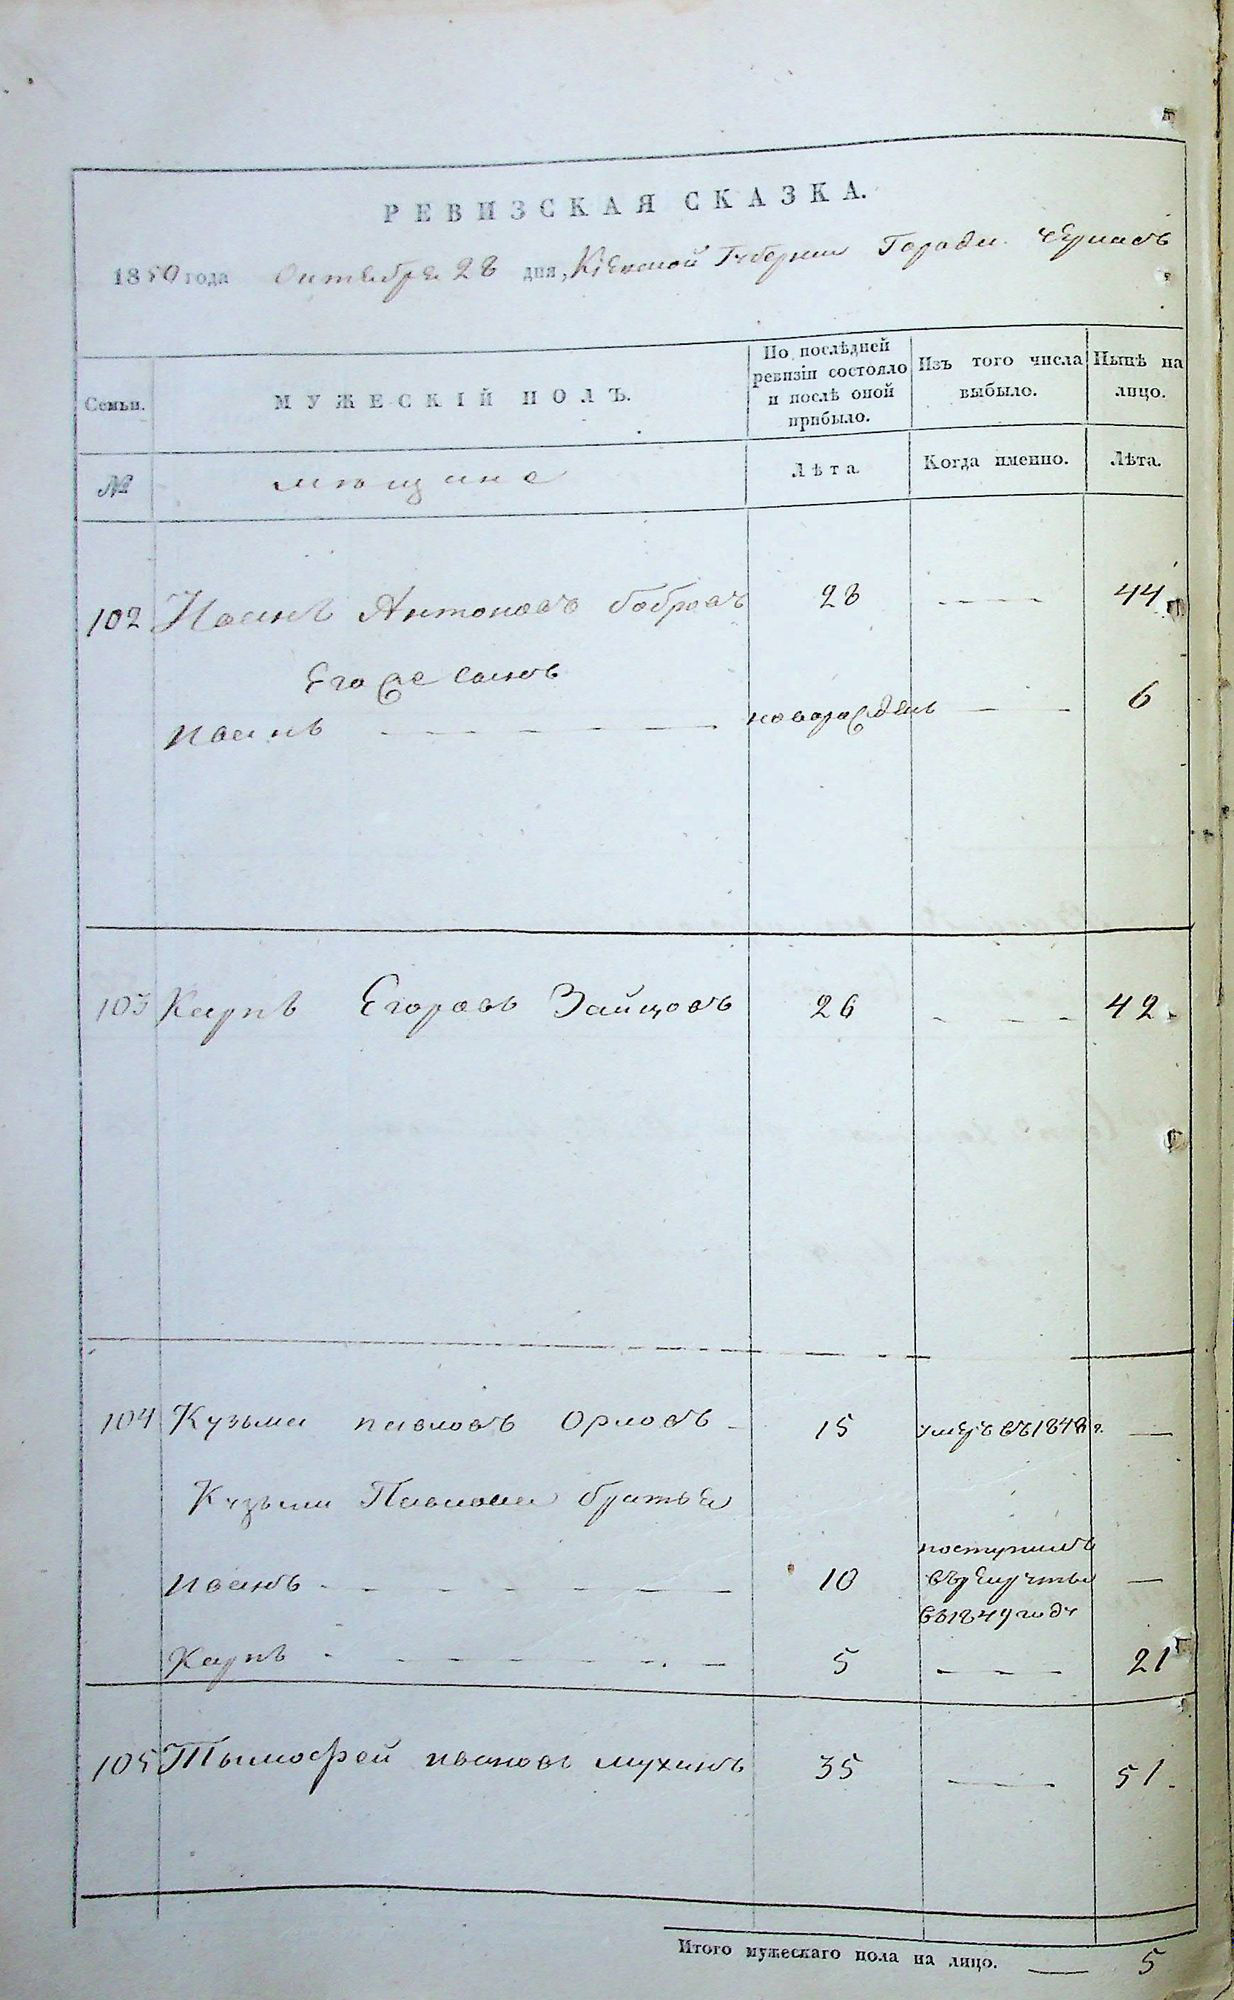 РЕВИЗСКАЯ СКАЗКА.
1850 года Октября 28 дня, Кіевской Губерніи Города Черкасъ
Семьи.
МУЖЕСКІЙ ПОЛЪ.
По послѣдней
ревизіи состояло
и послѣ оной
прибыло.
Изъ того числа
выбыло.
Нынѣ на
лицо.
№
мещане
Лѣта
Когда именно.
Лѣта.
102 Иванъ Антоновъ бобровъ 28 — — — — 44
Его же Сынъ
Иванъ — — — — — — — новорожденъ — — 6
103 Карпъ Егоровъ Зайцовъ 26 — — — 42
104 Кузьма павловъ Орловъ 15 умеръ въ 1848 г. —
Кузьмы Павлова братья
поступилъ
Иванъ — — — — — — — 10 въ рекруты —
въ 1849 году
Карпъ — — — — — — 5 — — — 21
105 Тымофей ивановъ мухинъ 35 — — 51
Итого мужескаго пола на лицо. — 5